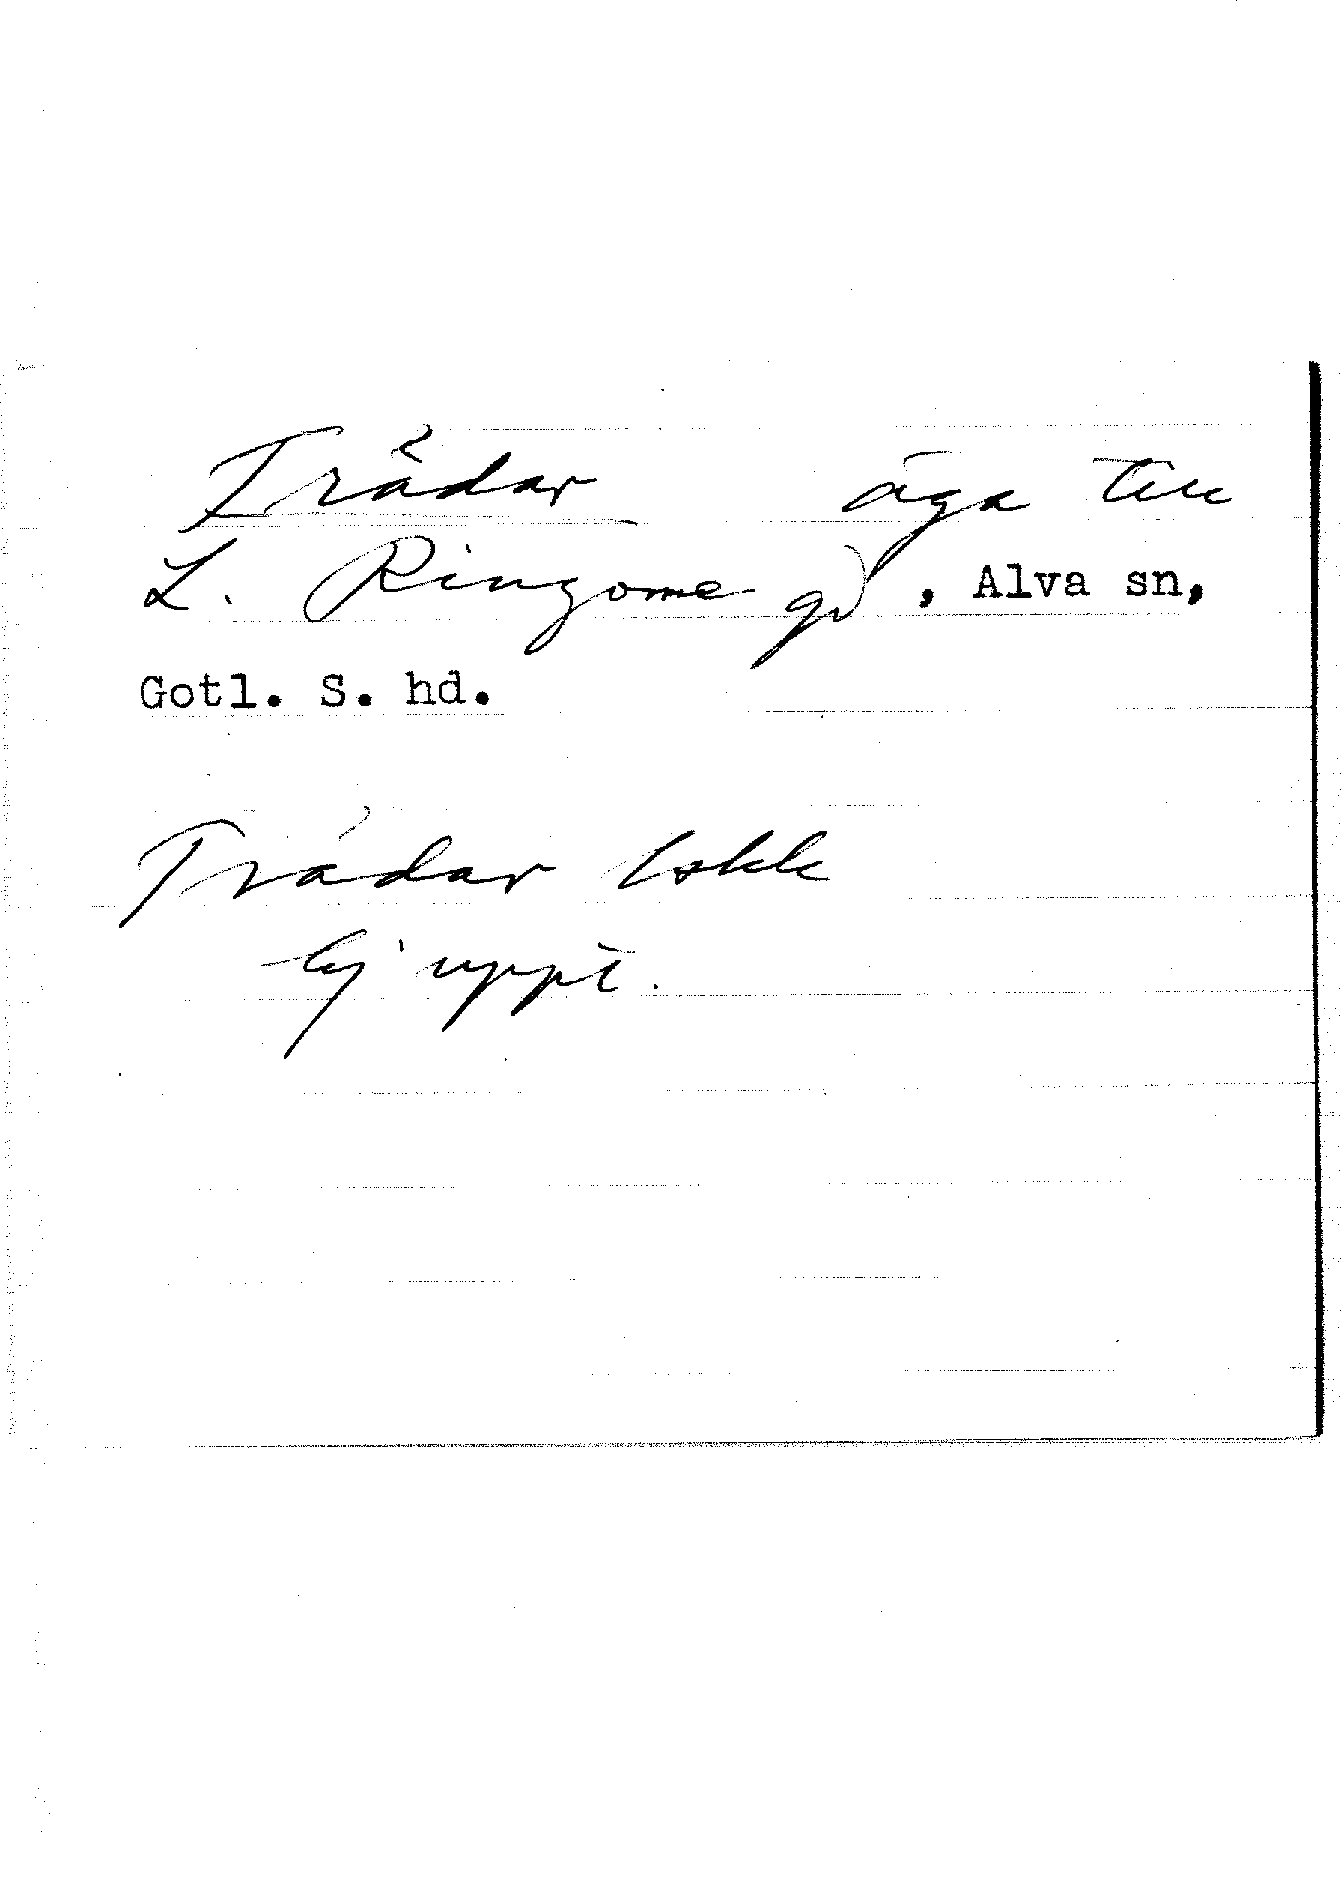 Trådar äga till
L. Ringome gd, Alva sn,
Gotl. S. hd.
Trådar Iskk
Ej uppt.